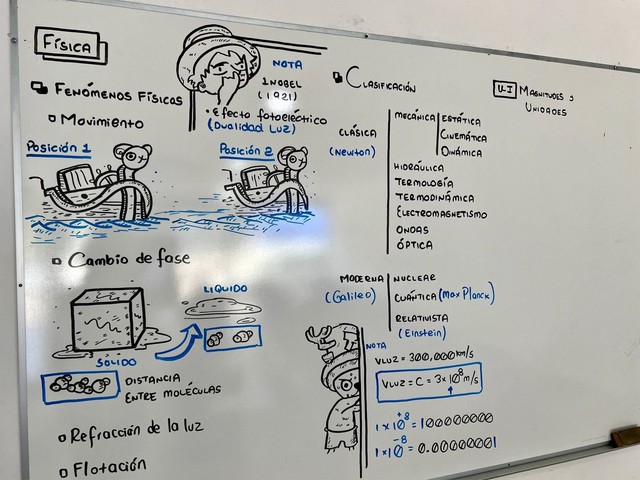 FÍSICA
FENÓMENOS FÍSICOS
Movimiento
Posición 1
Posición 2
NOTA
1 NOBEL
(1921)
• Efecto fotoeléctrico
(Dualidad Luz)
Cambio de fase
LÍQUIDO
SÓLIDO
DISTANCIA
ENTRE MOLÉCULAS
Refracción de la luz
Flotación
CLASIFICACIÓN
CLÁSICA
(Newton)
MECÁNICA
ESTÁTICA
CINEMÁTICA
DINÁMICA
HIDRÁULICA
TERMOLOGÍA
TERMODINÁMICA
ELECTROMAGNETISMO
ONDAS
ÓPTICA
MODERNA
(Galileo)
NUCLEAR
CUÁNTICA (Max Planck)
RELATIVISTA
(Einstein)
NOTA
VLUZ = 300,000 km/s
VLUZ = C = 3x10⁸ m/s
1x10⁺⁸ = 100000000
1x10⁻⁸ = 0.00000001
U-I MAGNITUDES y
UNIDADES